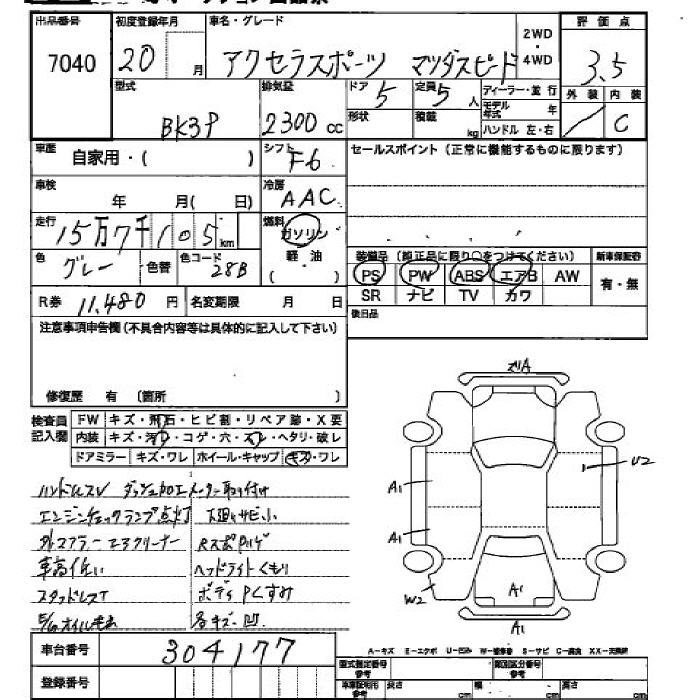 出品番号 初度登録年月 車名・グレード 2WD・4WD 評価点
7040 20 月 アクセラスポーツ マツダスピード 3.5
型式 排気量 ドア 5 定員 5 人 ディーラー・並行 外装 内装
BK3P 2300 cc 形状 積載 kg モデル年式 年 C
ハンドル 左・右
車歴 自家用・( ) シフト F6 セールスポイント(正常に機能するものに限ります)
車検 年 月( 日) 冷房 AAC
走行 15万7千105 km 燃料 ガソリン 軽油 ( )
色 グレー 色替 色コード 28B
装備品(純正品に限り○をつけてください) 新車保証書
PS PW ABS エアB AW 有・無
SR ナビ TV カワ
R券 11,480 円 名変期限 月 日 後日品
注意事項申告欄(不具合内容等は具体的に記入して下さい)
修復歴 有 〔箇所 〕
検査員記入欄 FW キズ・飛石・ヒビ割・リペア跡・X要
内装 キズ・汚レ・コゲ・穴・スレ・ヘタリ・破レ
ドアミラー キズ・ワレ ホイール・キャップ キズ・ワレ
ハンドルスレ ダッシュ加工メーター取り付け
エンジンチェックランプ点灯 下廻りサビ小
社外マフラー エアクリーナー
車高低い ヘッドライトくもり
スタッドレスT ボディPくすみ
各キズ・凹
A1
U2
A1
A1
W2
A1
A1
車台番号 304177
A-キズ E-エクボ U-凹み W-補修巻 S-サビ C-腐食 XX-交換済
登録番号
型式指定番号 参考 類別区分番号 参考
長さ cm 幅 cm 高さ cm